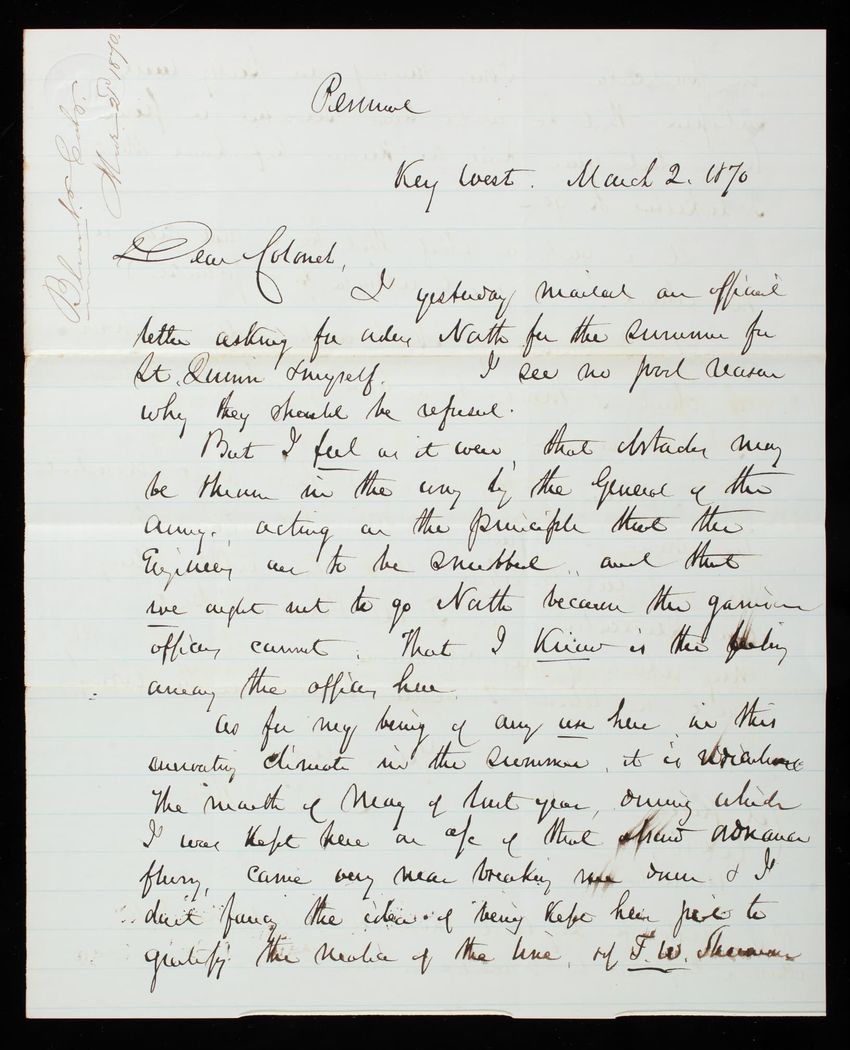 Blunt. Capt.
Mar. 2d 1870
Personal
Key West. March 2. 1870
Dear Colonel,
I yesterday mailed an official
letter asking for orders North for the summer for
Lt. Quinn & myself. I see no good reason
why they should be refused.
But I feel as it were, that obstacles may
be thrown in the way by the General of the
Army, acting on the principle that the
Engineers are to be snubbed, and that
we ought not to go North because the garrison
officers cannot. That I know is the feeling
among the officers here.
As for my being of any use here in this
enervating climate in the summer, it is ridiculous
The month of May of last year, during which
I was kept here on a/c of that ordnance
flurry, came very near breaking me down & I
don't fancy the idea of being kept here just to
gratify the malice of the line, or of T. W. Sherman